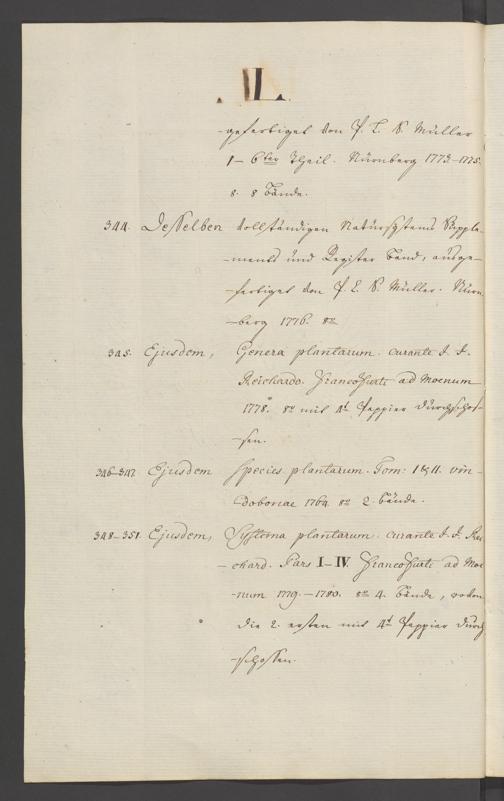 L.
gefertiget von P. L. S. Müller
1–6ter Theil. Nürnberg 1773–1775.
8. 8 Bände.
344. Desselben vollständigen Natursystems Supple-
-ments und Register Band, ausge-
-fertiget von P. L. S. Müller. Nürn-
-berg 1776. 8º
345. Ejusdem, Genera plantarum. curante J. J.
Reichardo. Francofurti ad Moenum
1778. 8º mit 4t Pappier durchschos-
-sen.
346–347. Ejusdem Species plantarum. Tom: I & II. Vin-
-dobonae 1764. 8º 2. Bände.
348–351. Ejusdem, Systema plantarum. curante J. J. Rei-
-chard. Pars I–IV. Francofurti ad Moe-
-num 1779.–1780. 8º 4. Bände, wovon
die 2. ersten mit 4t Pappier durch-
-schossen.